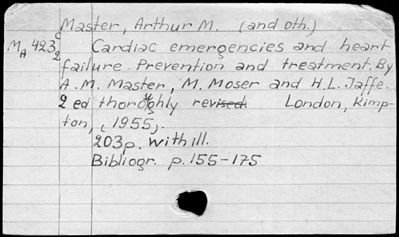 Master, Arthur M. (and oth.)
MA 423 c2 Cardiac emergencies and heart
failure. Prevention and treatment. By
A.M. Master, M. Moser and H.L. Jaffe.
2 ed thoroughly revised. London, Kimp-
ton, (1955).
203p. with ill.
Bibliogr. p. 155-175